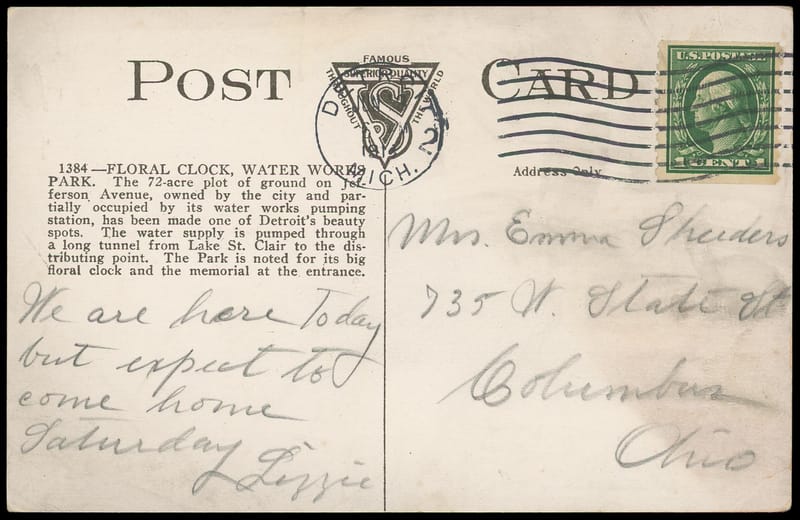 POST CARD
FAMOUS
SUPERIOR QUALITY
THROUGHOUT THE WORLD
U.S. POSTAGE
1 CENT 1
MICH.
2
Address Only
1384—FLORAL CLOCK, WATER WORKS
PARK. The 72-acre plot of ground on Jef-
ferson Avenue, owned by the city and par-
tially occupied by its water works pumping
station, has been made one of Detroit's beauty
spots. The water supply is pumped through
a long tunnel from Lake St. Clair to the dis-
tributing point. The Park is noted for its big
floral clock and the memorial at the entrance.
We are here Today
but expect to
come home
Saturday
Lizzie
Mrs. Emma Sheeders
735 W. State St
Columbus
Ohio